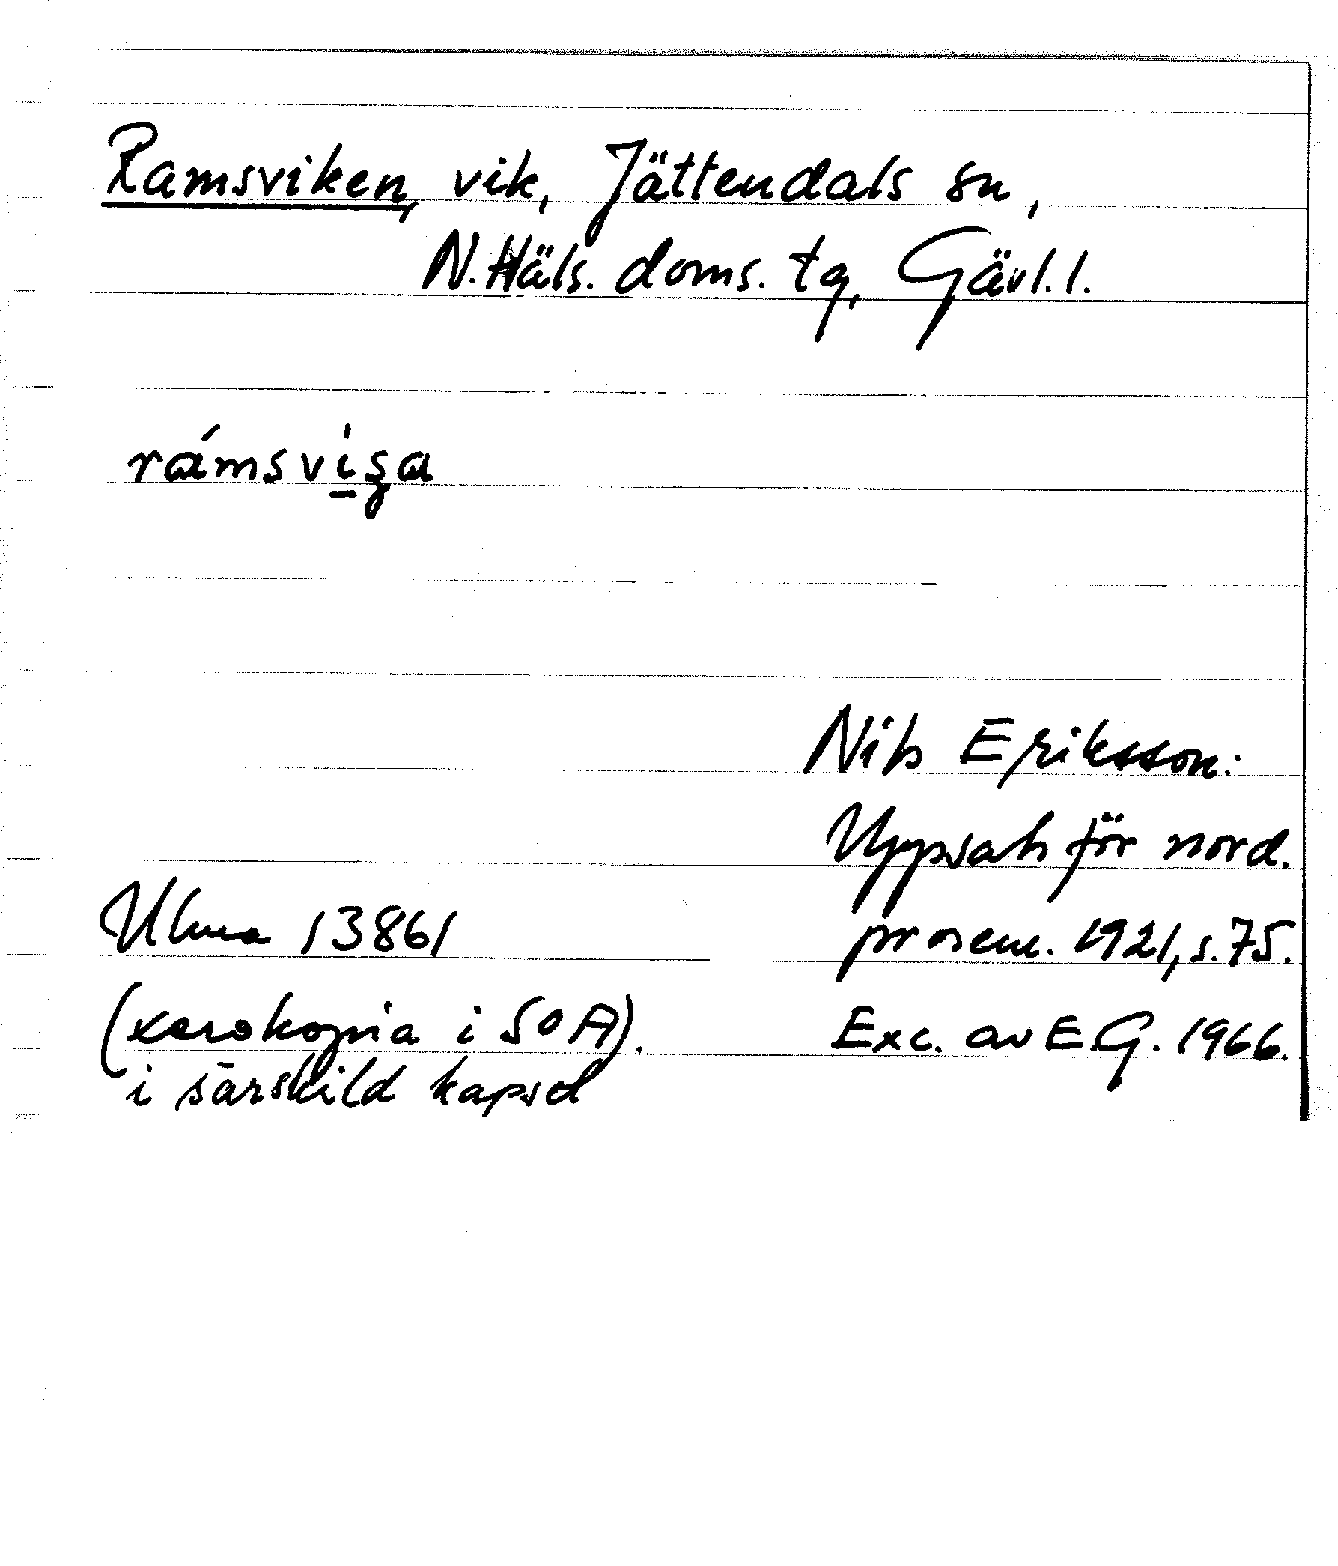 Ramsviken, vik, Jättendals sn,
N. Häls. doms. tg, Gävl. l.
rámsvi̱ʂa
Nils Eriksson:
Uppsats för nord.
Ulma 13861
prosem. 1921, s. 75.
(xerokopia i SOA).
Exc. av E G. 1966.
i särskild kapsel